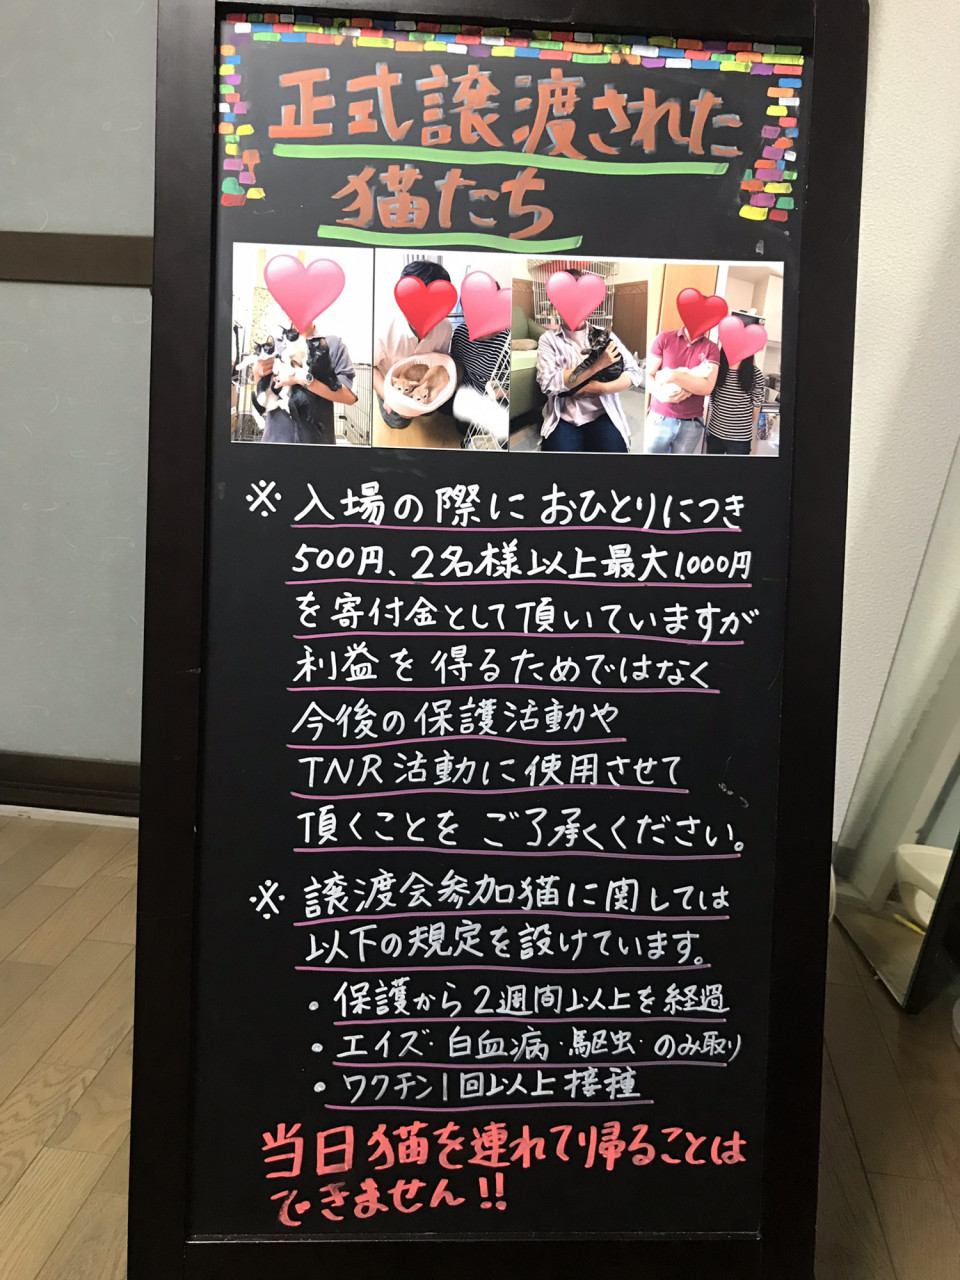 正式譲渡された
猫たち
※入場の際におひとりにつき
500円、2名様以上最大1,000円
を寄付金として頂いていますが
利益を得るためではなく
今後の保護活動や
TNR活動に使用させて
頂くことをご了承ください。
※譲渡会参加猫に関しては
以下の規定を設けています。
・保護から2週間以上を経過
・エイズ・白血病・駆虫・のみ取り
・ワクチン1回以上接種
当日猫を連れて帰ることは
できません!!